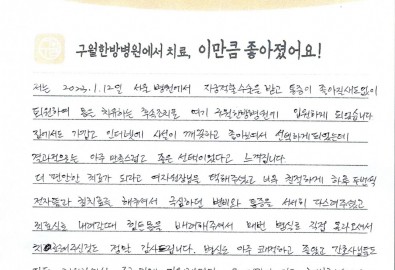 구월한방병원에서 치료, 이만큼 좋아졌어요!
저는 2023.1.12일 서울 병원에서 자궁적출수술을 받고 통증이 좋아질새도없이
퇴원하여 몸을 치유하는 후속조치로 여기 구월한방병원에 입원하게 되었습니다
집에서도 가깝고 인터넷에 시설이 깨끗하고 좋아보여서 선택하게되었는데
결과적으로는 아주 만족스럽고 좋은 선택이었다고 느껴집니다.
더 편안한 치료가 되라고 여자원장님을 택해주셨고 너무 친절하게 하루 두번씩
전자뜸과 침치료를 해주셔서 극심하던 변비와 통증을 서서히 다스려주셨고
치료실로 내려갈때 힘든몸을 배려해주셔서 매번 병실로 직접 올라오셔서
치료해주신것도 정말 감사드립니다. 병실은 아주 쾌적하고 좋았고 간호사분들도